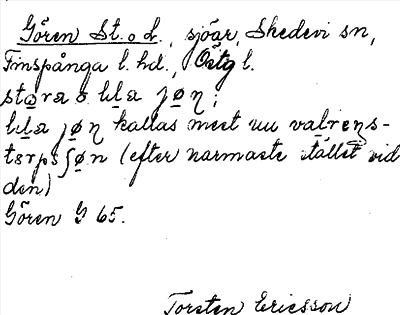 Gören St. o. L., sjöar, Skedevi sn,
Finspånga l. hd., Östg l.
stɷra o lɩla jøn;
lɩla jøn kallas mest nu valrens-
tɷrpsʃøn (efter närmaste stället vid
den)
Gören G 65.
Torsten Ericsson